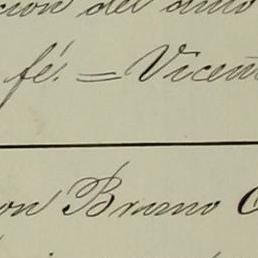 cion del auto
fé. = Vicen
on Bruno